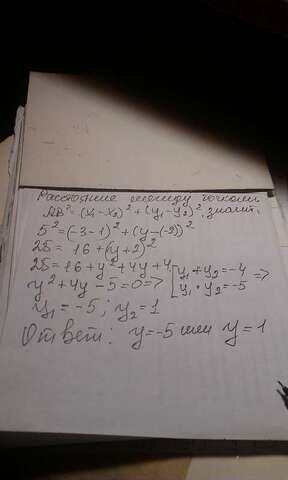 Расстояние между точками
AB²= (x₁-x₂)²+(y₁-y₂)², значит,
5²=(-3-1)²+(y-(-2))²
25= 16+(y+2)²
25=16+y²+4y+4
y²+4y-5=0=> [y₁+y₂=-4 =>
y₁·y₂=-5
y₁=-5; y₂=1
Ответ: y=-5 или y=1